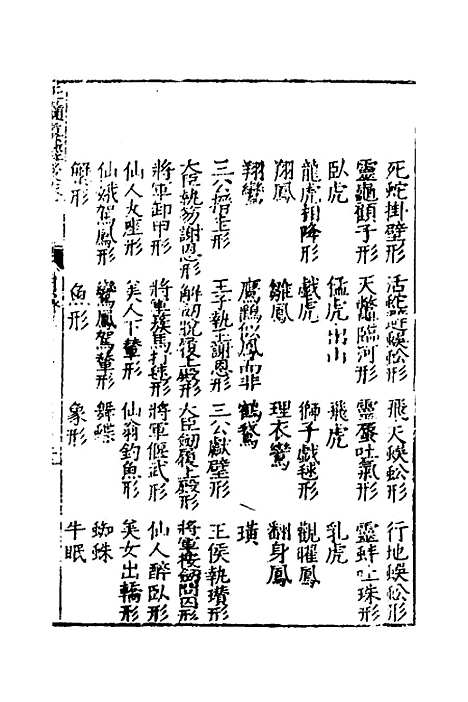 死蛇掛壁形 活蛇趕蜈蚣形 飛天蜈蚣形 行地蜈蚣形
靈龜顧子形 天鱉臨河形 靈蜃吐氣形 靈蚌吐珠形
臥虎 猛虎出山 飛虎 乳虎
龍虎相降形 戲虎 獅子戲毬形 觀曜鳳
翔鳳 雛鳳 理衣鸞 翻身鳳
翔鸞 鷹鶴似鳳而非 鶴鶖 璜
三公搢笏形 王子執圭謝恩形 三公獻璧形 王侯執瓚形
大臣執笏謝恩形 解劒脫履上殿形 大臣劒履上殿形 將軍按劒問囚形
將軍卸甲形 將軍簇馬打毬形 將軍偃武形 仙人醉臥形
仙人大座形 美人下輦形 仙翁釣魚形 美女出轎形
仙娥駕鳳形 鸞鳳駕輦形 舞蝶 蜘蛛
蟹形 魚形 象形 牛眠